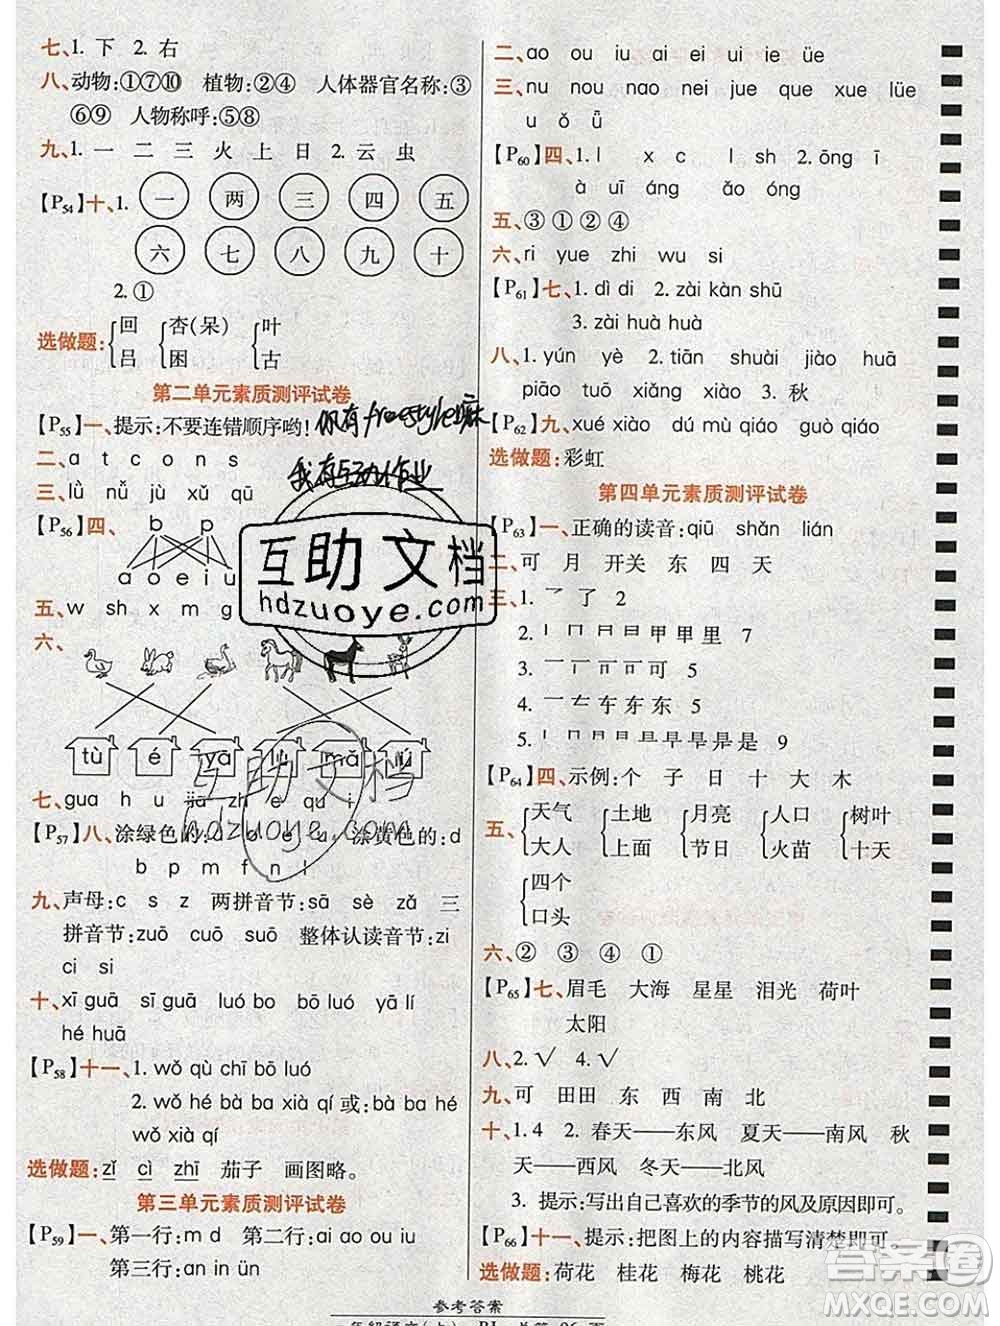 七、1. 下 2. 右
八、动物:①⑦⑩ 植物:②④ 人体器官名称:③
⑥⑨ 人物称呼:⑤⑧
九、1. 一 二 三 火 上 日 2. 云 虫
【P54】十、1. 一 两 三 四 五
六 七 八 九 十
2. ①
选做题: 回 杏(呆) 叶
吕 困 古
第二单元素质测评试卷
【P55】一、提示:不要连错顺序哟!
你有freestyle嘛
我有互动作业
二、a t c o n s
三、lǜ nǚ jù xǔ qū
【P56】四、 b p
a o e i u
五、w sh x m g
六、
tù é yā lú mǎ
七、gua h u jia zh e qu i
【P57】八、涂绿色的: 涂黄色的:d
b p m f n l
九、声母:c s z 两拼音节:sā sè zǎ 三
拼音节:zuō cuō suō 整体认读音节:zi
ci si
十、xī guā sī guā luó bo bō luó yā lí
hé huā
【P58】十一、1. wǒ qù chī bō luó
2. wǒ hé bà ba xià qí 或:bà ba hé
wǒ xià qí
选做题:zǐ cì zhī 茄子 画图略。
第三单元素质测评试卷
【P59】一、第一行:m d 第二行:ai ao ou iu
第三行:an in ün
二、ao ou iu ai ei ui ie üe
三、nu nou nao nei jue que xue lüe
u ǒ ǖ
【P60】四、1. l x c l sh 2. ōng ī
à uī áng ǎo óng
五、③ ① ② ④
六、ri yue zhi wu si
【P61】七、1. dì di 2. zài kàn shū
3. zài huà huà
八、1. yún yè 2. tiān shuài jiào huā
piāo tuō xiǎng xiào 3. 秋
【P62】九、xué xiào dú mù qiáo guò qiáo
选做题:彩虹
第四单元素质测评试卷
【P63】一、正确的读音:qiū shǎn lián
二、可 月 开关 东 四 天
三、1. 乛 了 2
2. 7
3. 可 5
4. 东 5
5. 是 9
【P64】四、示例:个 子 日 十 大 木
五、 天气 土地 月亮 人口 树叶
大人 上面 节日 火苗 十天
四个
口头
六、② ③ ④ ①
【P65】七、眉毛 大海 星星 泪光 荷叶
太阳
八、2. √ 4. √
九、可 田田 东 西 南 北
十、1. 4 2. 春天——东风 夏天——南风 秋
天——西风 冬天——北风
3. 提示:写出自己喜欢的季节的风及原因即可。
【P66】十一、提示:将图上的内容描写清楚即可。
选做题:荷花 桂花 梅花 桃花
互助文档
hdzuoye.com
互助文档
hdzuoye.com
参考答案
答案圈
MXQE.COM